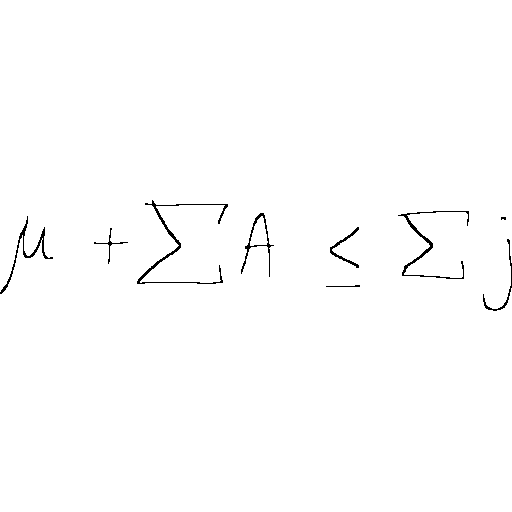 μ + ∑ A ≤ ∑ j